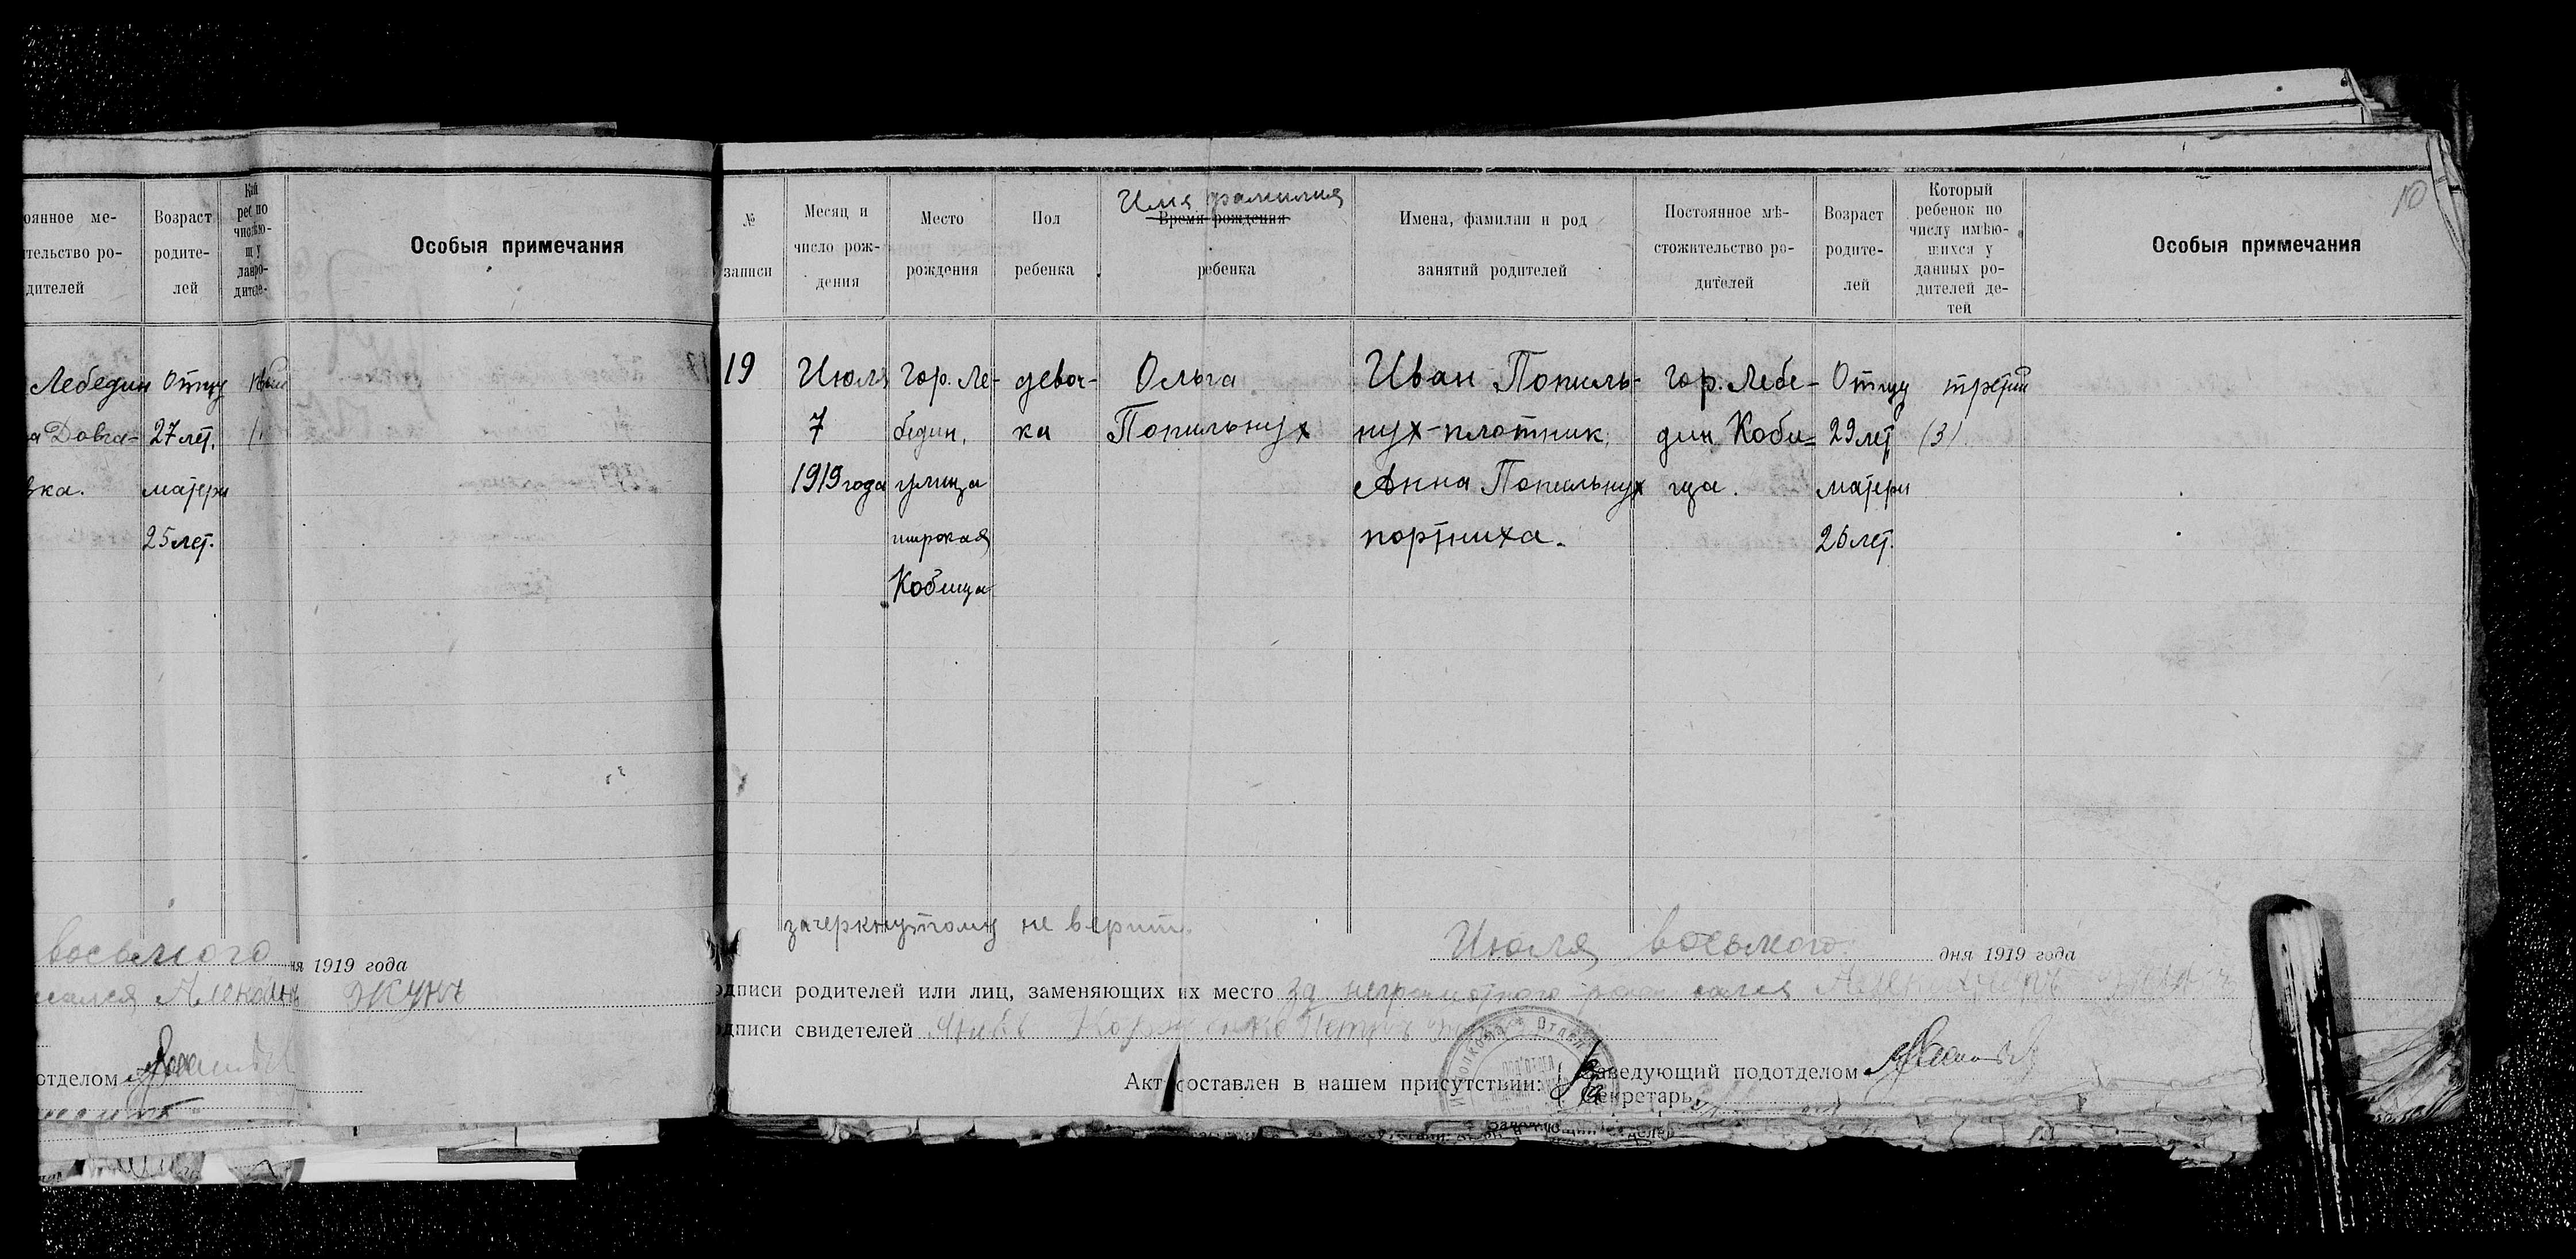 оянное ме-
тельство ро-
дителей
Возраст
родите-
лей
Особыя примечания
Лебедин
а Довга-
вка.
Отцу
27 лет,
матери
25 лет.
восьмого
ня 1919 года
отделом
10
№
записи
Месяц и
число рож-
дения
Место
рождения
Пол
ребенка
Имя фамилия
Время рождения
ребенка
Имена, фамилии и род
занятий родителей
Постоянное мѣ-
стожительство ро-
дителей
Возраст
родите-
лей
Который
ребенок по
числу имѣю-
шихся у
данных ро-
дителей де-
тей
Особыя примечания
19
Июля
7
1919 года
гор. Ле-
бедин,
улица
широкая
Кобища
девоч-
ка
Ольга
Попильнух
Иван Попиль-
нух-плотник,
Анна Попильнух
портниха.
гор. Лебе-
дин Коби-
ща.
Отцу
29 лет
матери
26 лет.
третий
(3)
зачеркнутому не верить
Июля восьмого дня 1919 года
одписи родителей или лиц, заменяющих их место за неграмотного
одписи свидетелей
Акт составлен в нашем присутствии:
Заведующий подотделом
Секретарь